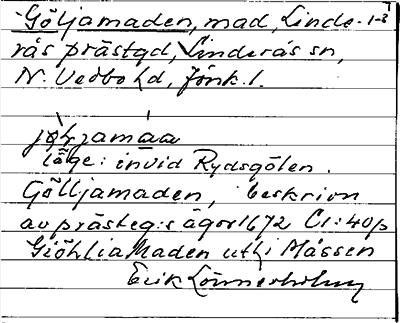 Göljamaden, mad, Linde- 1-3
rås prästgd, Linderås sn,
N. Vedbo hd, Jönk. l.
jø̀ɫjamáa
läge: invid Rydsgölen.
Gölljamaden, beskrivn
av prästeg:s ägor 1672 C1:40p
Giöhlia Maden uthi Måssen
Erik Lönnerholm